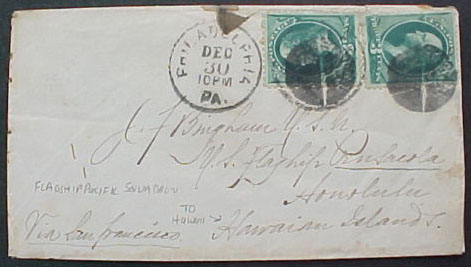 PHILADELPHIA
DEC
30
10PM
PA.
J. F. Bingham U.S.N.
U.S. Flagship Pensacola
Honolulu
Hawaiian Islands.
Via San francisco.
FLAGSHIP PACIFIC SQUADRON
TO
HAWAII